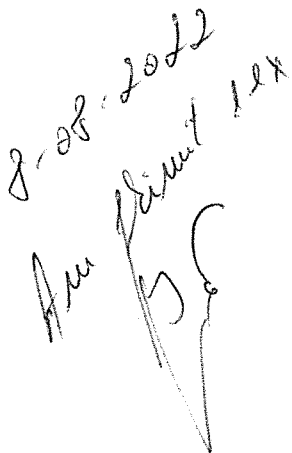 8-08-2022
Am primit 1 ex